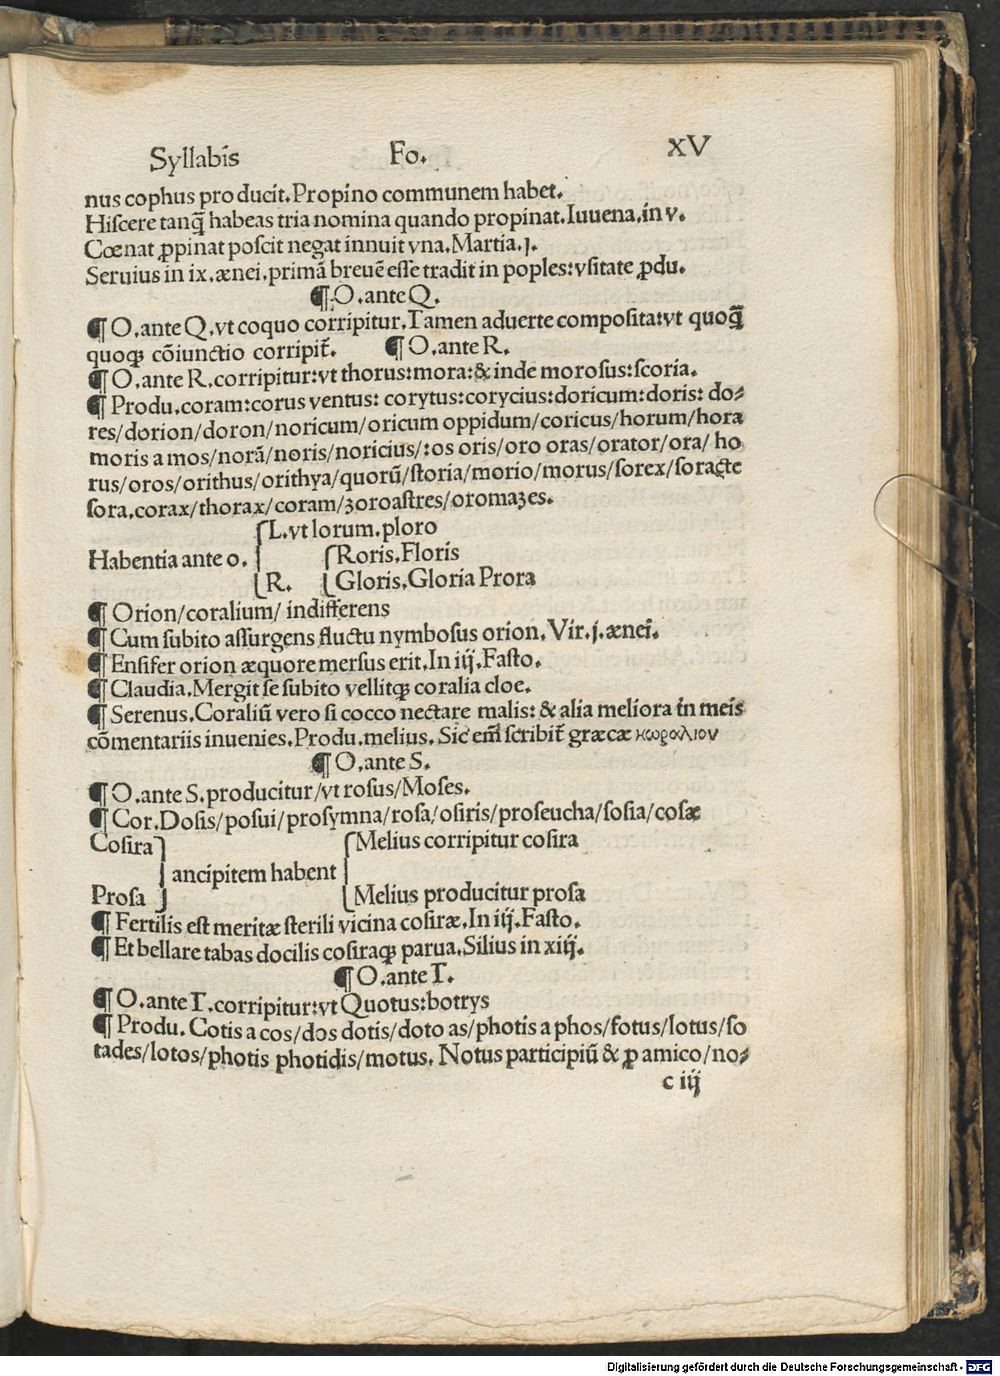 Syllabis Fo. XV
nus cophus producit. Propino communem habet.
Hiſcere tanq̄ habeas tria nomina quando propinat. Iuuena. in v.
Cœnat ꝓpinat poſcit negat innuit vna. Martia. j.
Seruius in ix. ænei. primā breuē eſſe tradit in poples: vſitate ꝓdu.
¶ O. ante Q.
¶ O. ante Q. vt coquo corripitur. Tamen aduerte compoſita: vt quoq̄
quoqꝫ cōiunctio corripit̄. ¶ O. ante R.
¶ O. ante R. corripitur: vt thorus: mora: & inde moroſus: ſcoria.
¶ Produ. coram: corus ventus: corytus: corycius: doricum: doris: do⸗
res/dorion/doron/noricum/oricum oppidum/coricus/horum/hora
moris a mos/norā/noris/noricius/: os oris/oro oras/orator/ora/ ho
rus/oros/orithus/orithya/quorū/ſtoria/morio/morus/ſorex/ſoracte
ſora. corax/thorax/coram/zoroaſtres/oromazes.
L. vt lorum. ploro
Habentia ante o. Roris. Floris
R. Gloris. Gloria Prora
¶ Orion/coralium/ indifferens
¶ Cum ſubito aſſurgens fluctu nymboſus orion. Vir. j. ænei.
¶ Enſifer orion æquore merſus erit. In iiij. Faſto.
¶ Claudia. Mergit ſe ſubito vellitqꝫ coralia cloe.
¶ Serenus. Coraliū vero ſi cocco nectare malis: & alia meliora in meis
cōmentariis inuenies. Produ. melius. Sic em̄ ſcribit̄ græcæ κωραλιον
¶ O. ante S.
¶ O. ante S. producitur/vt roſus/Moſes.
¶ Cor. Doſis/poſui/proſymna/roſa/oſiris/proſeucha/ſoſia/coſæ
Coſira Melius corripitur coſira
ancipitem habent
Proſa Melius producitur proſa
¶ Fertilis eſt meritæ ſterili vicina coſiræ. In iij. Faſto.
¶ Et bellare tabas docilis coſiraqꝫ parua. Silius in xiiij.
¶ O. ante T.
¶ O. ante T. corripitur: vt Quotus: botrys
¶ Produ. Cotis a cos/dos dotis/doto as/photis a phos/fotus/lotus/ſo
tades/lotos/photis photidis/motus. Notus participiū & ꝓ amico/no⸗
c iij
Digitalisierung gefördert durch die Deutsche Forschungsgemeinschaft - DFG